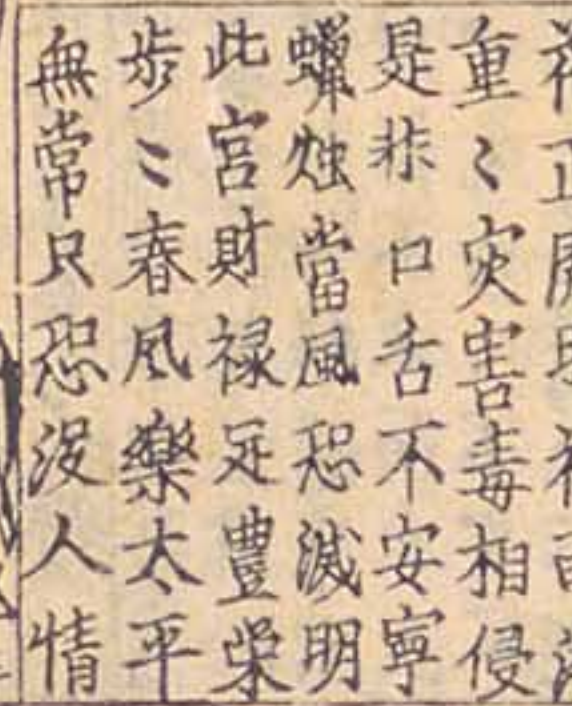 重〻灾害毒相侵
是非口舌不安寧
蠟烛當風恐滅明
此宮財禄足豊栄
步〻春風樂太平
無常只恐没人情